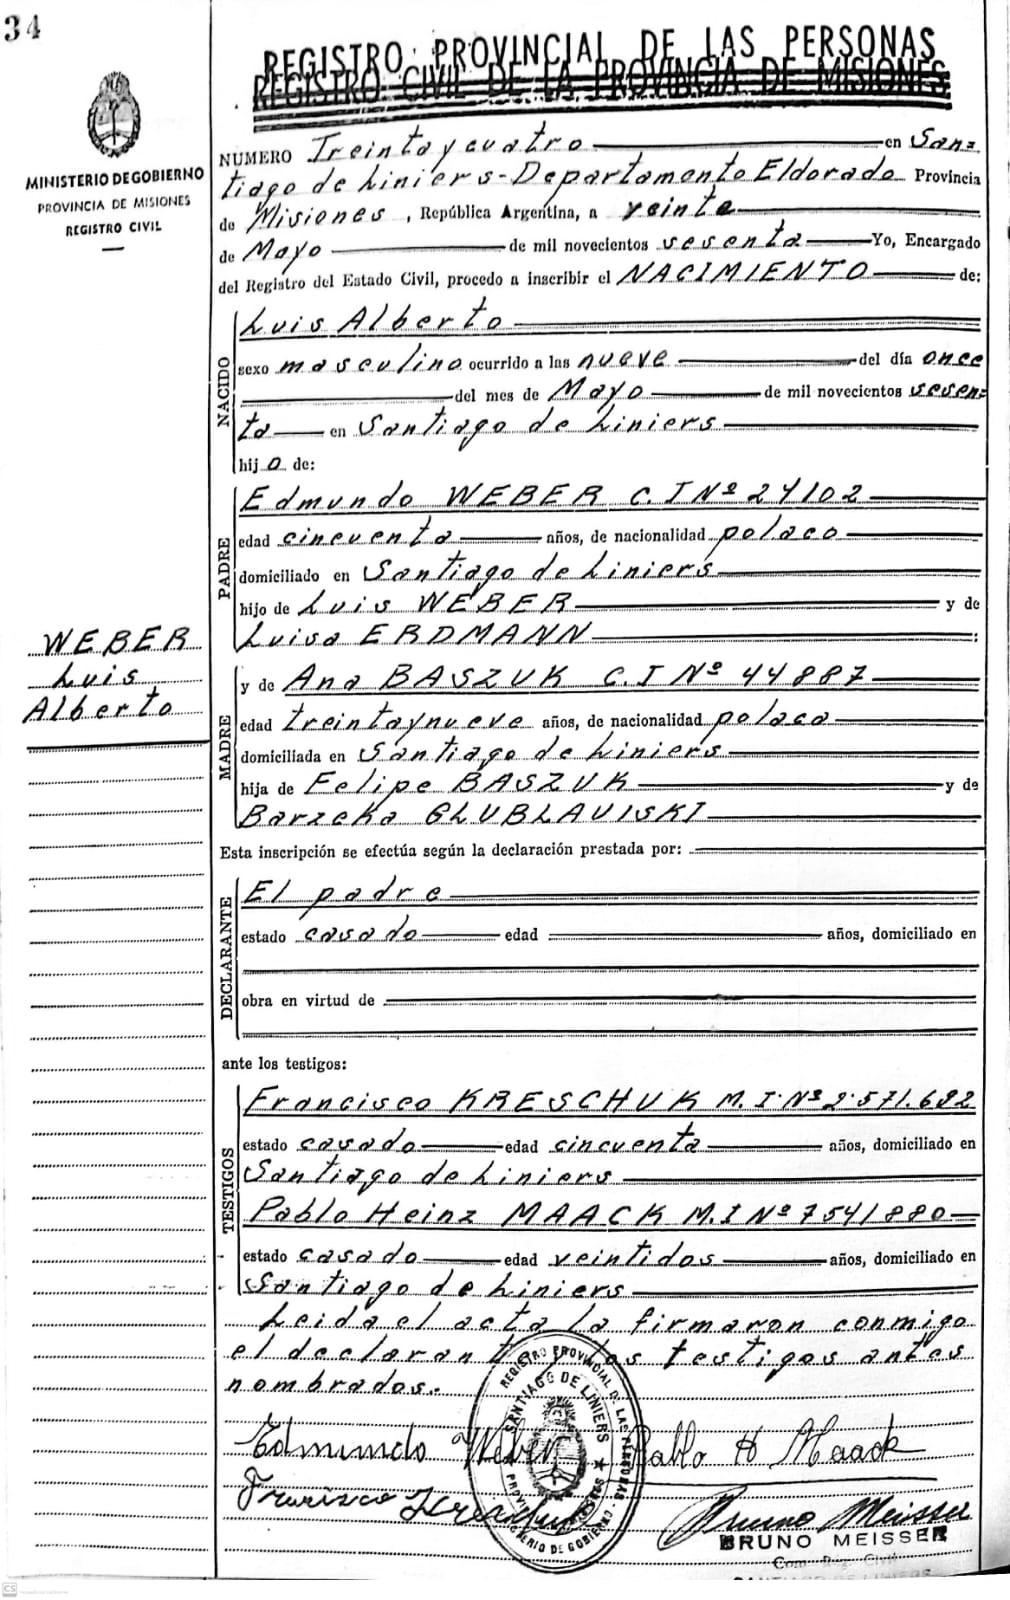 34
REGISTRO PROVINCIAL DE LAS PERSONAS
REGISTRO CIVIL DE LA PROVINCIA DE MISIONES
MINISTERIO DE GOBIERNO
PROVINCIA DE MISIONES
REGISTRO CIVIL
NUMERO Treinta y cuatro en San=
tiago de Liniers-Departamento Eldorado Provincia
de Misiones, República Argentina, a veinte
de Mayo de mil novecientos sesenta Yo, Encargado
del Registro del Estado Civil, procedo a inscribir el NACIMIENTO de:
NACIDO
Luis Alberto
sexo masculino ocurrido a las nueve del día once
del mes de Mayo de mil novecientos sesen=
ta en Santiago de Liniers
hijo de:
PADRE
Edmundo WEBER C.I Nº 24102
edad cincuenta años, de nacionalidad polaco
domiciliado en Santiago de Liniers
hijo de Luis WEBER y de
Luisa ERDMANN :
WEBER
Luis
Alberto
MADRE
y de Ana BASZUK C.I Nº 44887
edad treinta y nueve años, de nacionalidad polaca
domiciliada en Santiago de Liniers
hija de Felipe BASZUK y de
Barzcka GLUBLAUISKI
Esta inscripción se efectúa según la declaración prestada por:
DECLARANTE
El padre
estado casado edad años, domiciliado en
obra en virtud de
ante los testigos:
TESTIGOS
Francisco KRESCHUK M.I.Nº 2.571.682
estado casado edad cincuenta años, domiciliado en
Santiago de Liniers
Pablo Heinz MAACK M.I Nº 7541880
estado casado edad veintidos años, domiciliado en
Santiago de Liniers
Leida el acta la firmaron conmigo
el declarante y los testigos antes
nombrados.
REGISTRO PROVINCIAL DE LAS PERSONAS
SANTIAGO DE LINIERS
MINISTERIO DE GOBIERNO
PROVINCIA MISIONES
Edmundo Weber Pablo H Maack
Francisco Kreschuk Bruno Meisser
BRUNO MEISSER
SANTIAGO DE LINIERS
CS